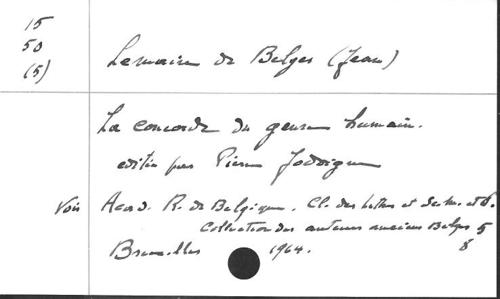 15
50
(5)
Lemaire de Belges (Jean)
La concorde du genre humain.
éditée par Pierre Jodogne
Voir Acad. R. de Belgique. Cl. des Lettres et
Collection des auteurs anciens Belges 5
Bruxelles 1964.